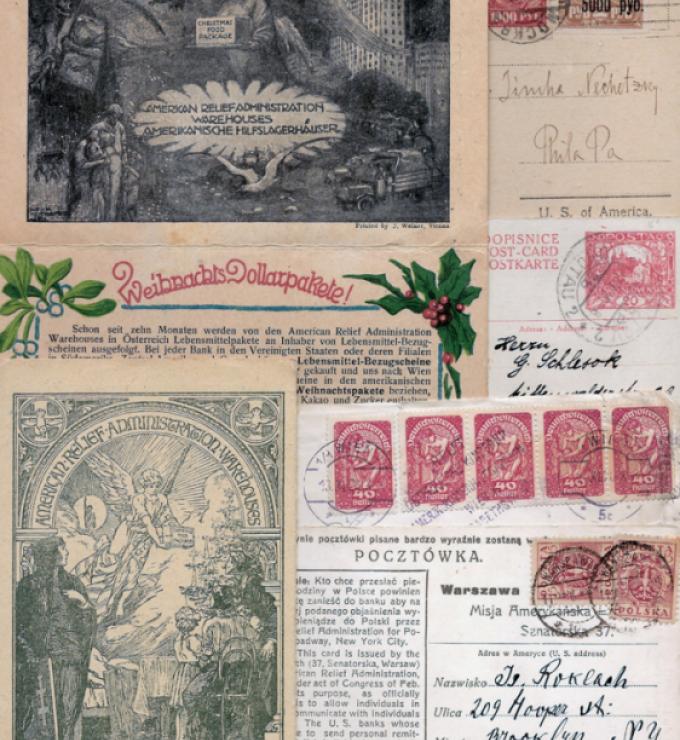 CHRISTMAS
FOOD
PACKAGE
AMERICAN RELIEF ADMINISTRATION
WAREHOUSES
AMERIKANISCHE HILFSLAGERHÄUSER
Printed by J. Weiner, Vienna
5000 руб.
Phila Pa
U. S. of America.
Weihnachts-Dollarpakete!
Schon seit zehn Monaten werden von den American Relief Administration
Warehouses in Österreich Lebensmittelpakete an Inhaber von Lebensmittel-Bezug-
scheinen ausgefolgt. Bei jeder Bank in den Vereinigten Staaten oder deren Filialen
Lebensmittel-Bezugscheine
gekauft und uns nach Wien
eine in den amerikanischen
Weihnachtspakete beziehen,
Kakao und Zucker enthalten
DOPISNICE
POST-CARD
POSTKARTE
Herrn
G. Schlesok
AMERICAN·RELIEF·ADMINISTRATION·WAREHOUSES
40 40 40 40 40
Heller
5c
ynie pocztówki pisane bardzo wyraźnie zostaną w
POCZTÓWKA.
nie: Kto chce przesłać pie-
odziny w Polsce powinien
tę zanieść do banku aby na
ej podanego objaśnienia wy-
pieniądze do Polski przez
elief Administration for Po-
oadway, New York City.
This card is issued by the
th (37, Senatorska, Warsaw)
rican Relief Administration,
der act of Congress of Feb.
ts purpose, as officially
is to allow individuals in
ommunicate with individuals
The U. S. banks whose
e to send personal remit-
Warszawa
Misja Amerykańska
Senatorska 37.
POLSKA
Adres w Ameryce (U. S. address)
Nazwisko Is. Roklach
Ulica 209 Hooper str.
Brooklyn N Y